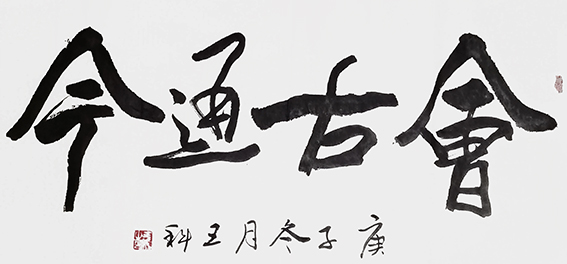 會古通今
庚子冬月王科